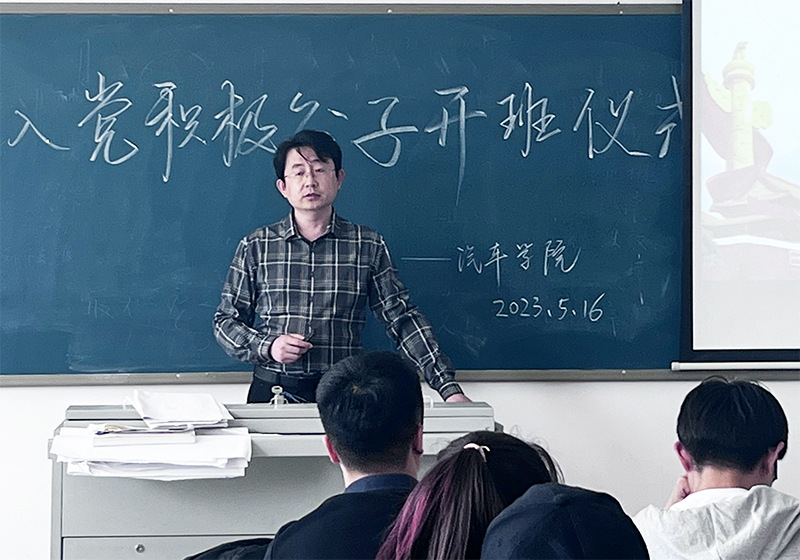 入党积极分子开班仪式
——汽车学院
2023.5.16